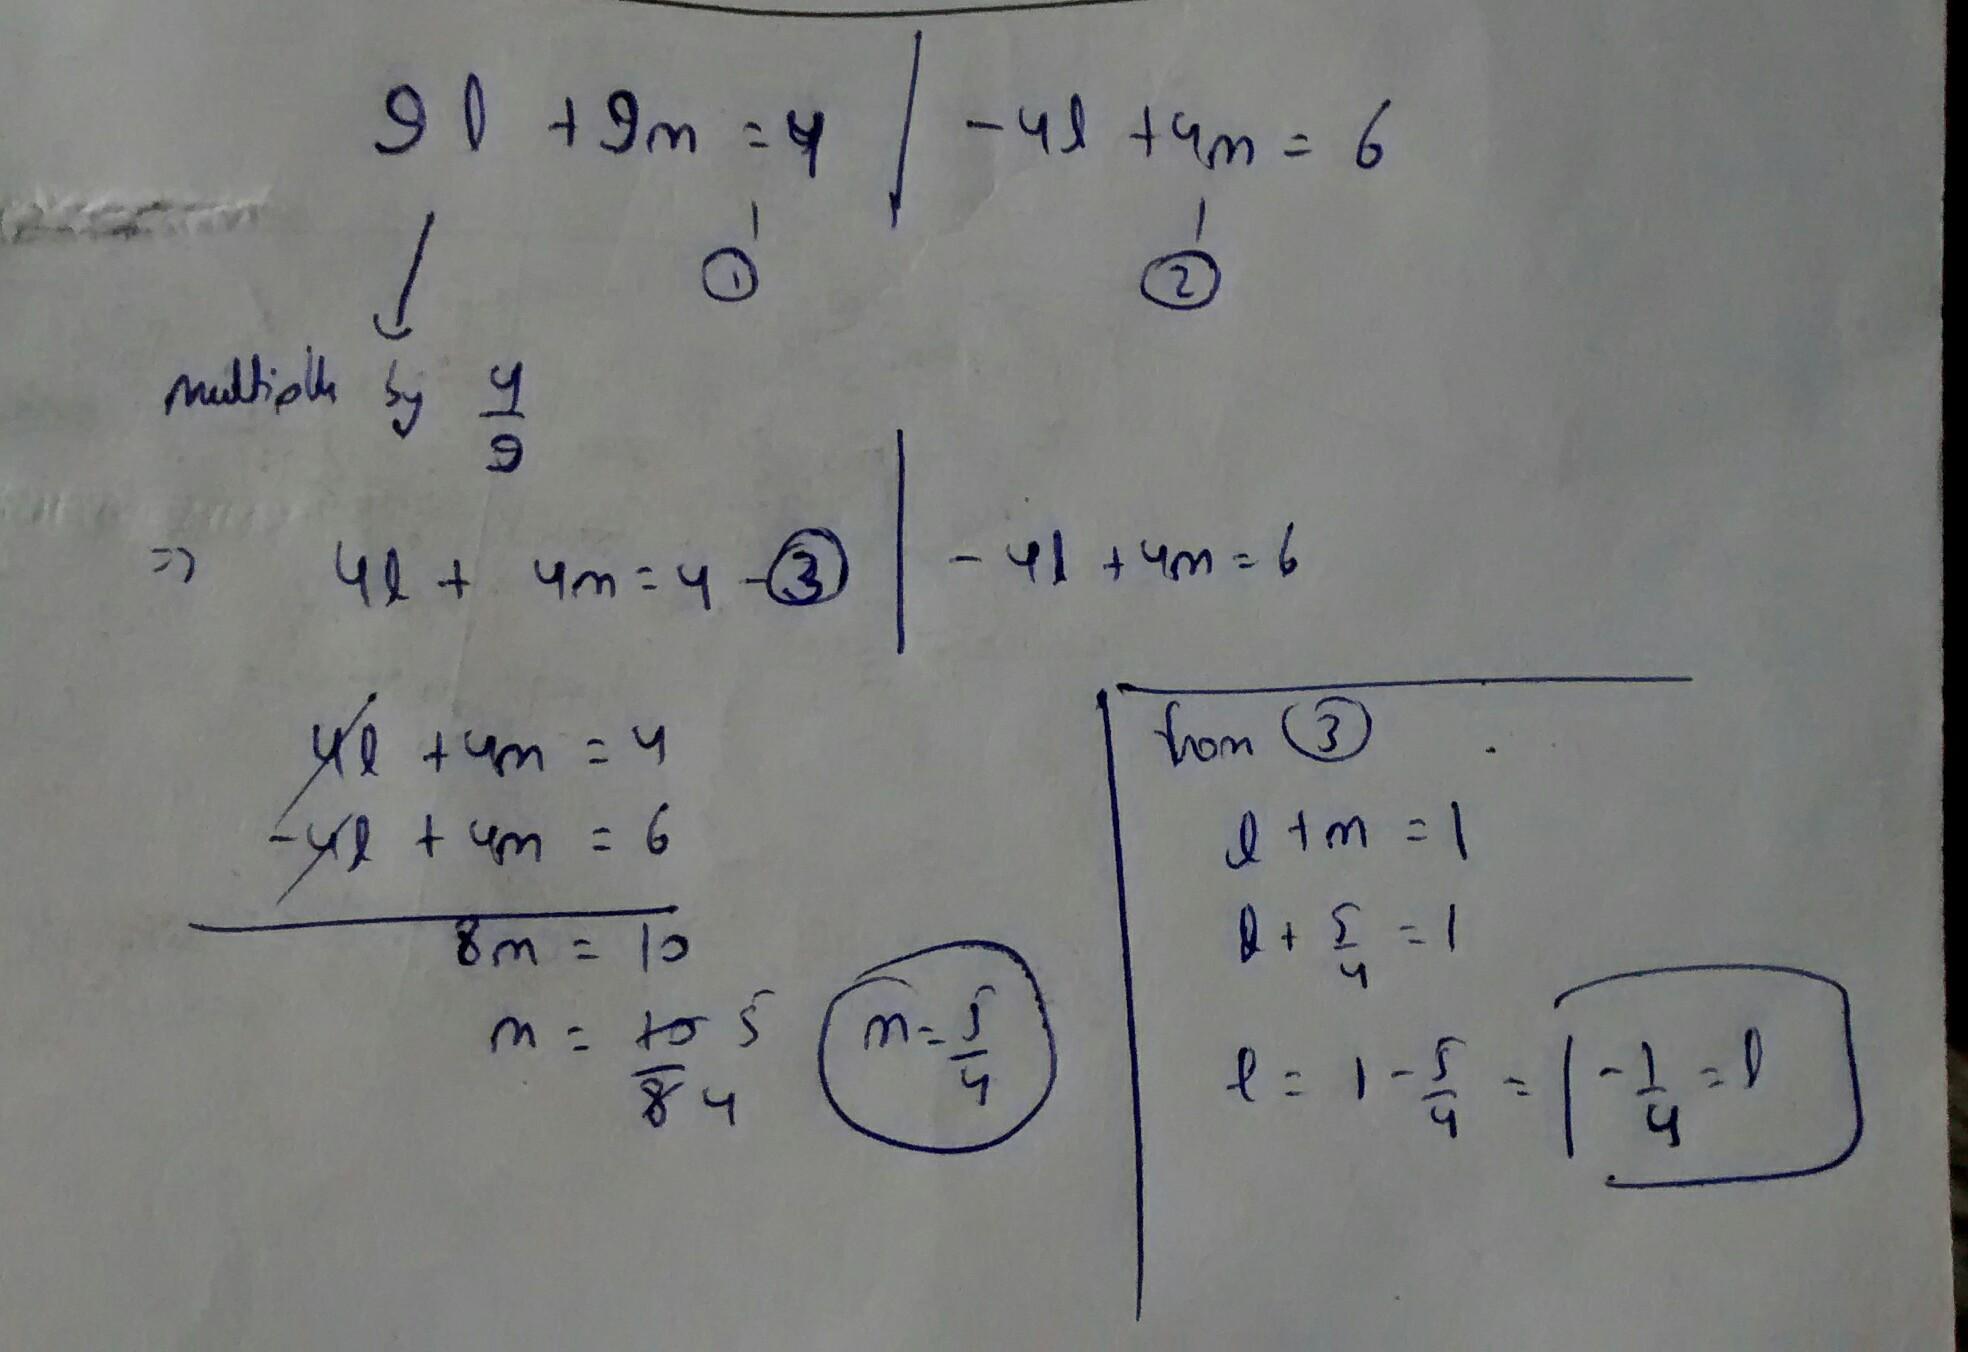 9l + 9m = 4 | -4l + 4m = 6
① ②
by 4/9
=> 4l + 4m = 4 - ③ | -4l + 4m = 6
4l + 4m = 4
-4l + 4m = 6
8m = 10
m = 10/8 5/4
m = 5/4
from ③
l + m = 1
l + 5/4 = 1
l = 1 - 5/4 = | -1/4 = l